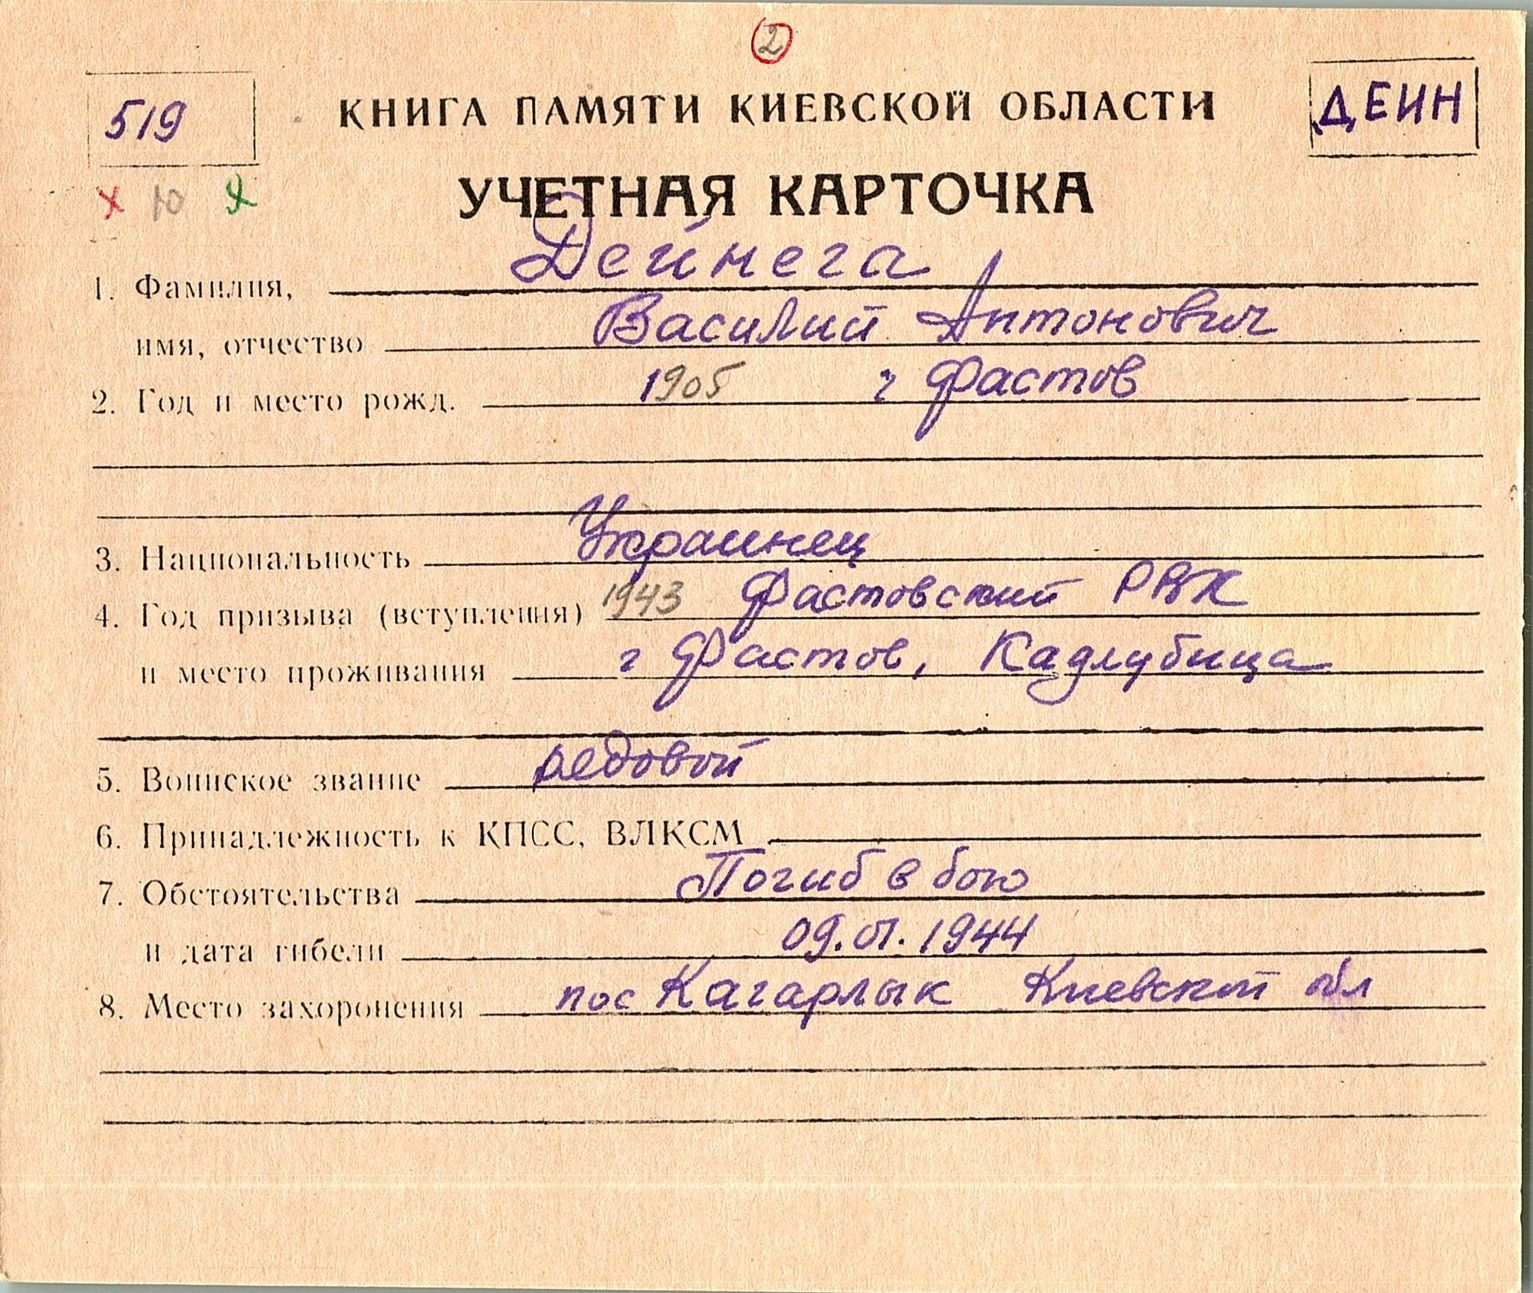 2
519
КНИГА ПАМЯТИ КИЕВСКОЙ ОБЛАСТИ
ДЕИН
х ю я
УЧЕТНАЯ КАРТОЧКА
1. Фамилия, Дейнега
имя, отчество Василий Антонович
2. Год и место рожд. 1905 г Фастов
3. Национальность Украинец
4. Год призыва (вступления) 1943 Фастовский РВК
и место проживания г Фастов, Кадлубица
5. Воинское звание редовой
6. Принадлежность к КПСС, ВЛКСМ
7. Обстоятельства Погиб в бою
и дата гибели 09.01.1944
8. Место захоронения пос Кагарлык Киевской обл